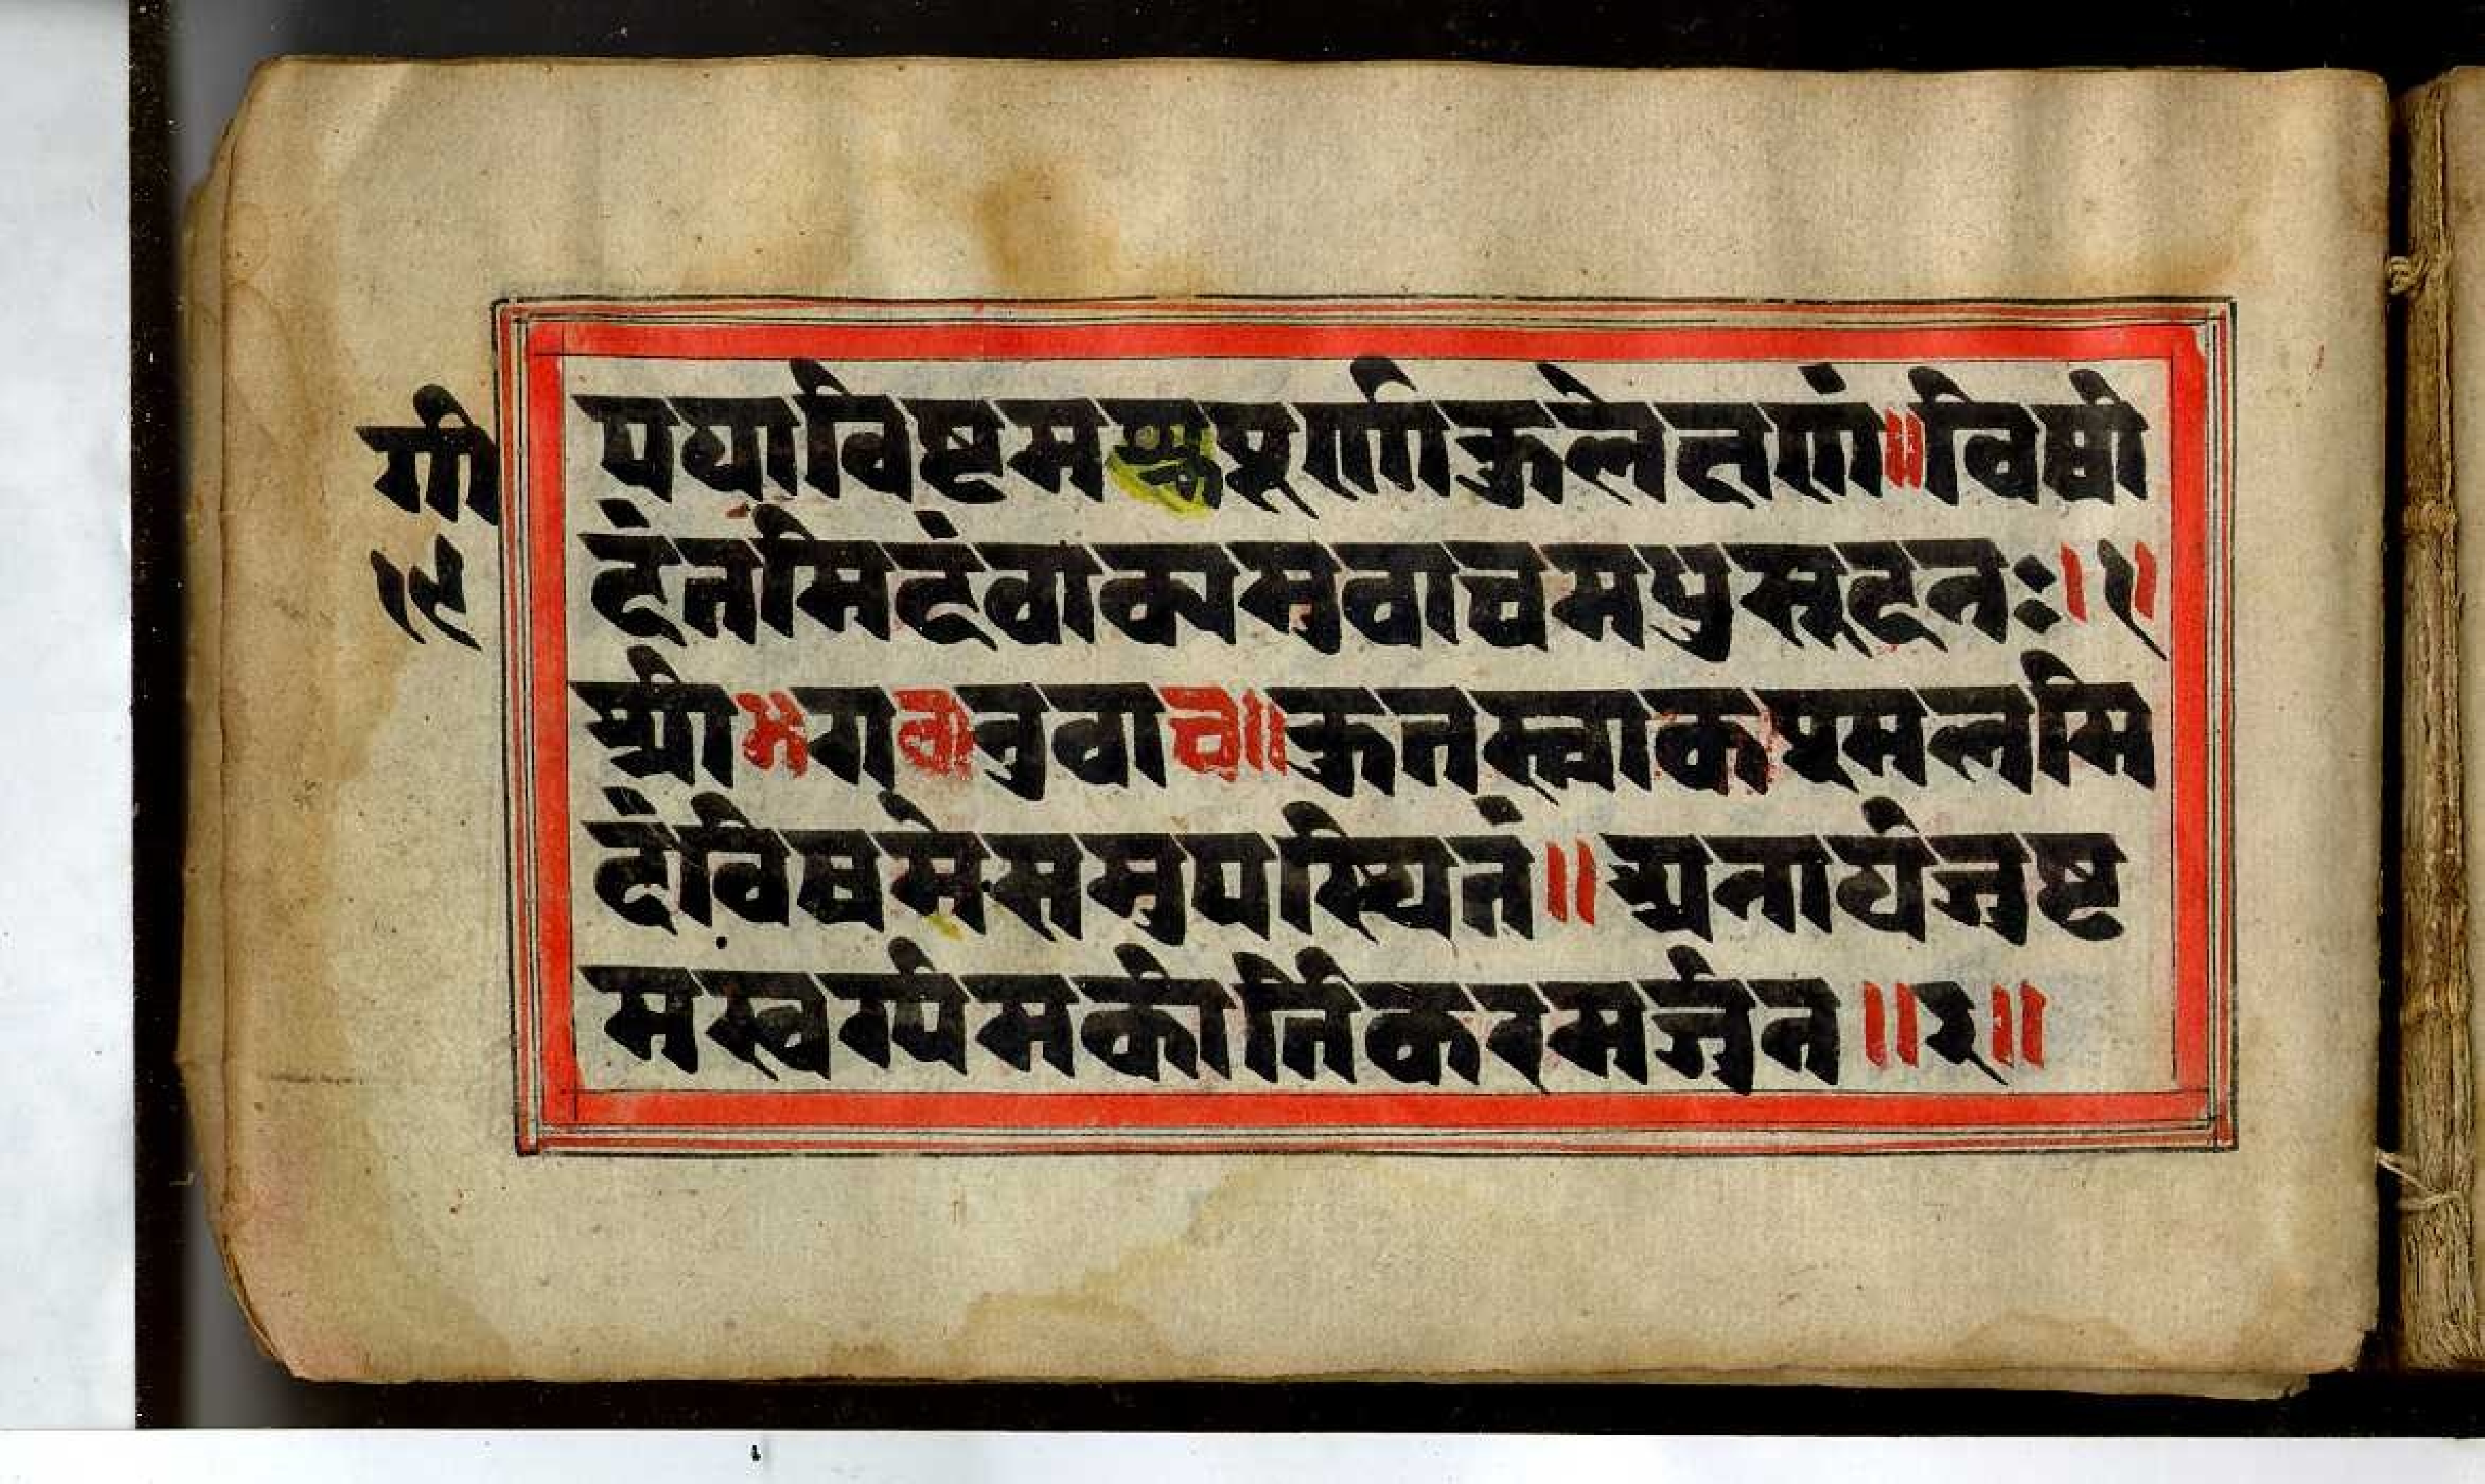 गी
१९
पयाविष्टमश्रुपूर्णाकुलेक्षणं॥विषी
दंतमिदंवाक्यमुवाचमधुसूदनः।१॥
श्रीभगवानुवाच॥कुतस्त्वाकश्मलमि
दंविषमेसमुपस्थितं॥अनार्यजुष्ट
मस्वर्ग्यमकीर्तिकरमर्जुन॥२॥